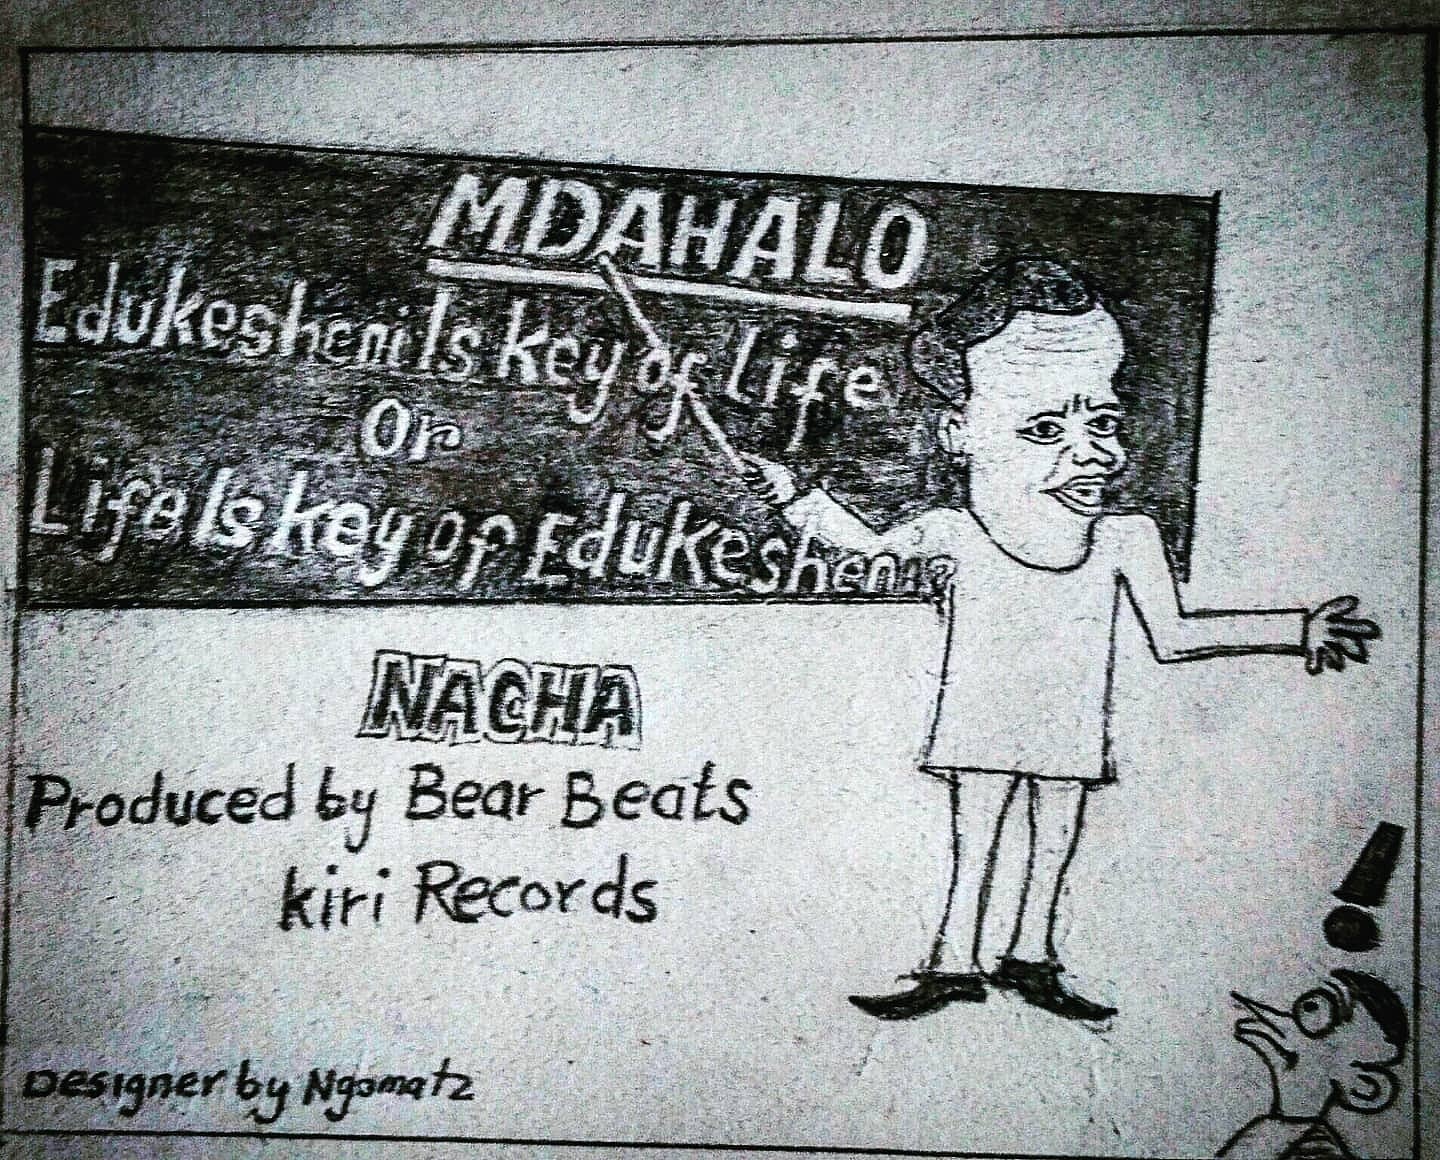 MDAHALO
Edukesheni Is key of life
Or
Life Is key of Edukesheni?
NACHA
Produced by Bear Beats
kiri Records
Designer by Ngomatz
!